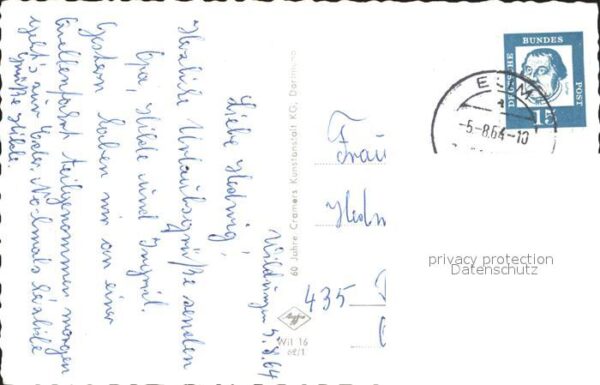 Wildungen 5.8.64
Liebe Hedwig!
Herzliche Urlaubsgrüße senden
Opa, Hilde und Ingrid.
Gestern haben wir an einer
Quellenfahrt teilgenommen morgen
geht's zur Eder. Nochmals herzliche
Grüße Hilde
60 Jahre Cramers Kunstanstalt KG, Dortmund
Wil 16
Frau
Hedw
435
DEUTSCHE
BUNDES
POST
15
-5.-8.64-10
privacy protection
Datenschutz